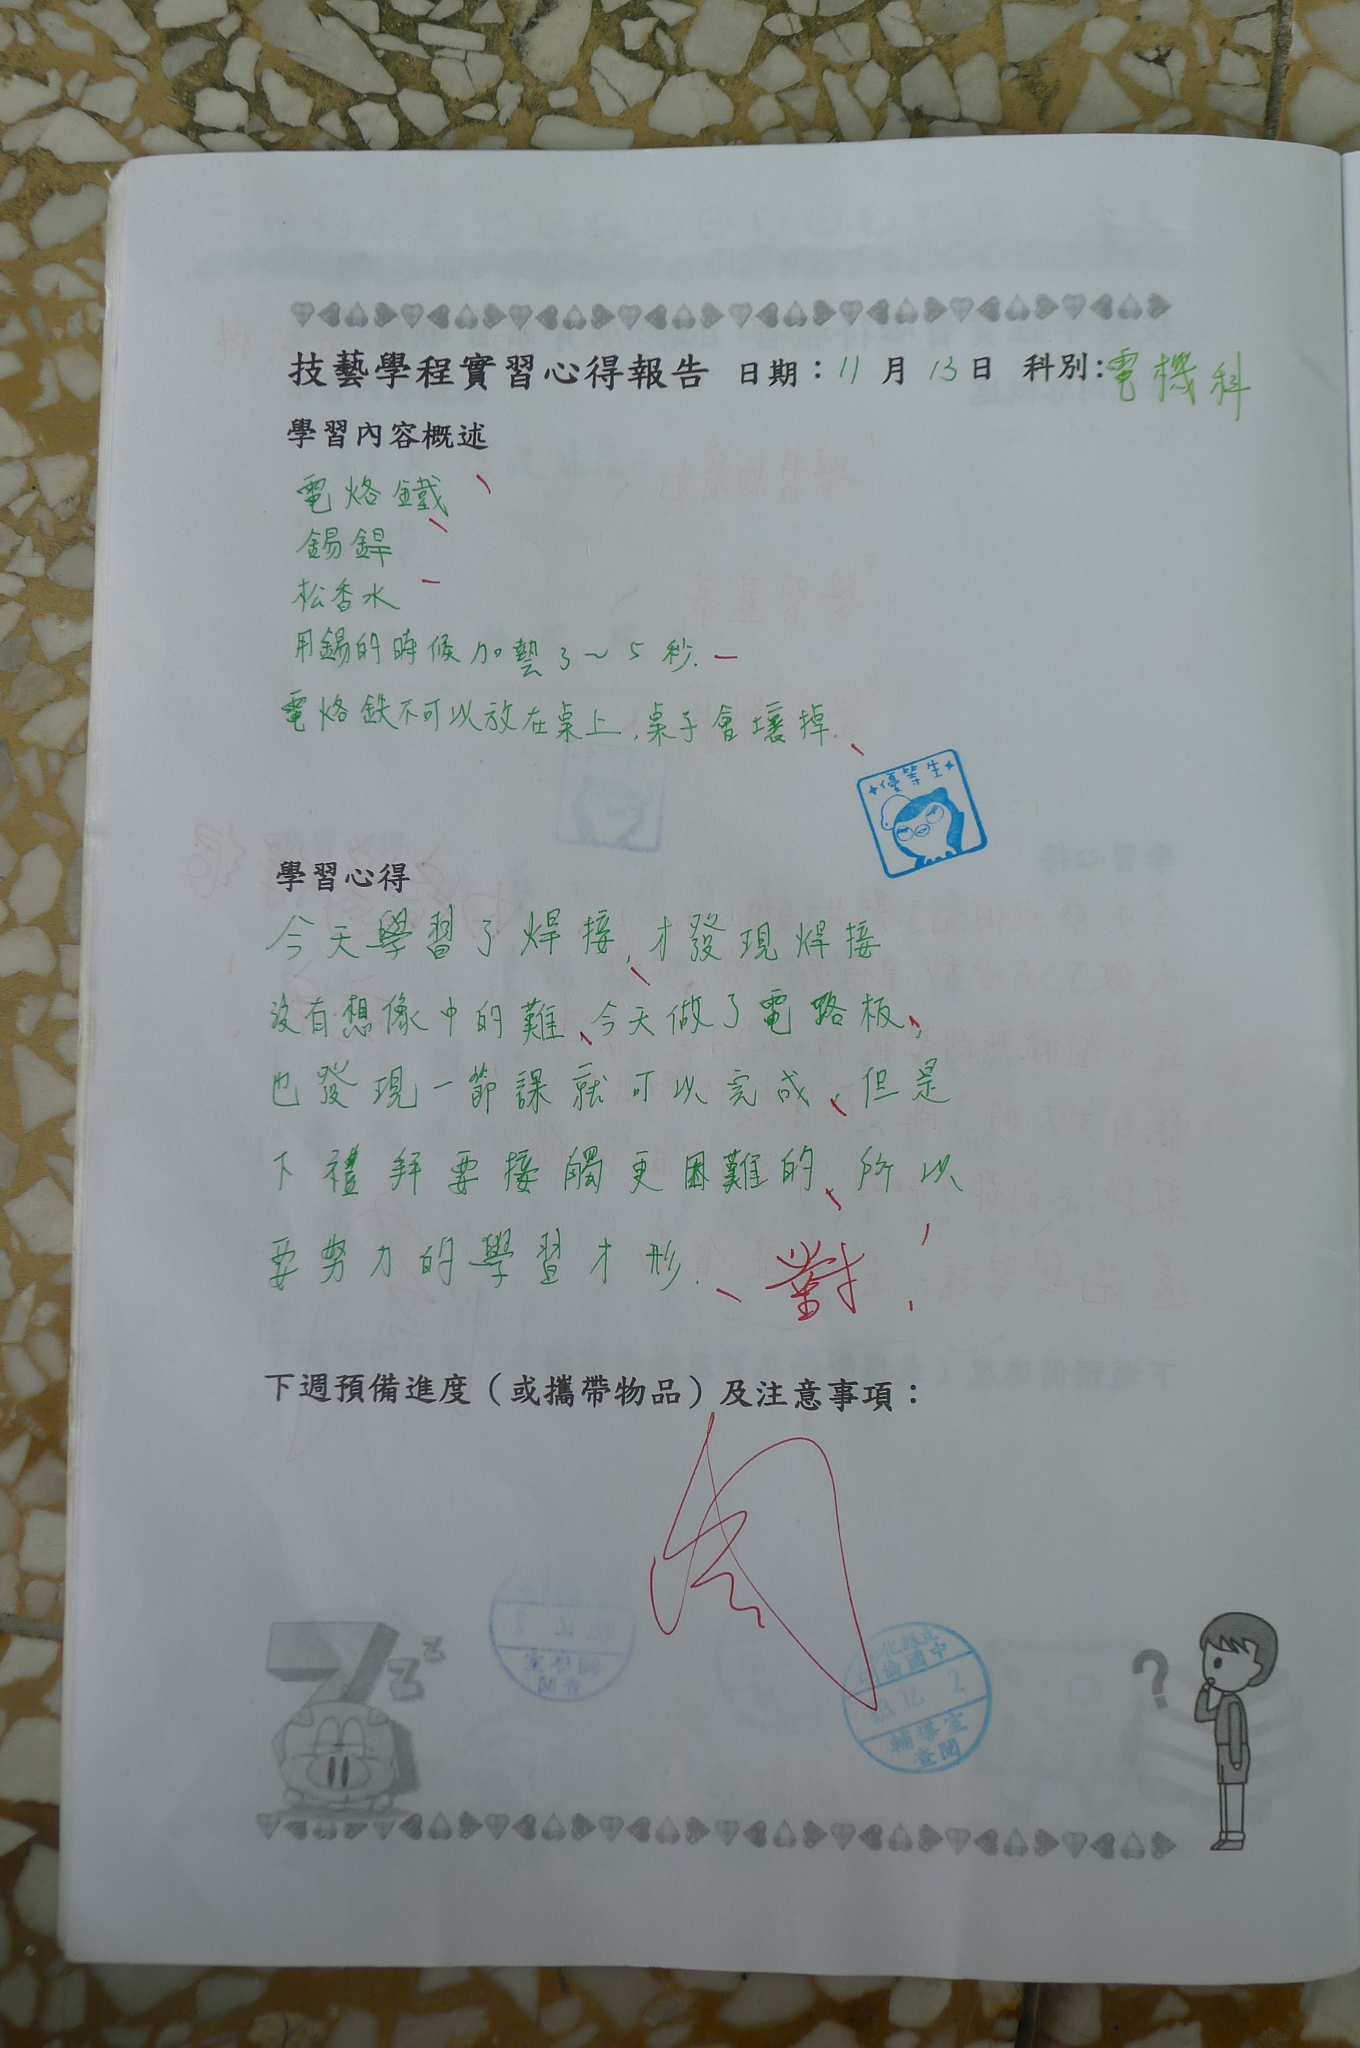 技藝學程實習心得報告 日期：11月13日 科別:電機科
學習內容概述
電烙鐵
錫銲
松香水
用錫的時候加熱3～5秒.
電烙鉄不可以放在桌上,桌子會壞掉.
優等生
學習心得
今天學習了焊接,才發現焊接
沒有想像中的難、今天做了電路板,
也發現一節課就可以完成,但是
下禮拜要接觸更困難的、所以
要努力的學習才形.
對!
下週預備進度（或攜帶物品）及注意事項：
Z z z
?
化縣立
國中
12. 2.
輔導室
查閱